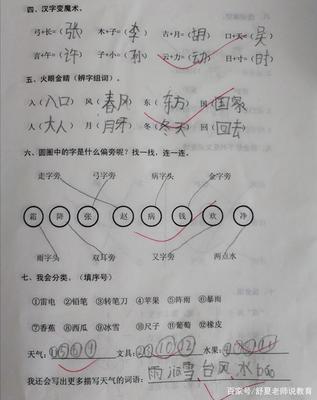 四、汉字变魔术。
弓+长=(张) 木+子=(李) 古+月=(胡) 口+天=(吴)
言+午=(许) 子+小=(孙) 云+力=(动) 日+寸=(时)
五、火眼金睛（辨字组词）。
入(入口) 风(春风) 东(东方) 国(国家)
人(大人) 月(月牙) 冬(冬天) 回(回去)
六、圆圈中的字是什么偏旁呢？找一找，连一连。
走字旁 弓字旁 病字头 金字旁
霜 降 张 赵 病 钱 欢 净
雨字头 双耳旁 又字旁 两点水
七、我会分类。（填序号）
①雷电 ②铅笔 ③转笔刀 ④苹果 ⑤阵雨 ⑥暴雨
⑦香蕉 ⑧西瓜 ⑨冰雪 ⑩尺子 ⑪葡萄 ⑫橡皮
天气: 文具: 水果:
我还会写出更多描写天气的词语: 雨 雪 台风 水
百家号/舒夏老师说教育